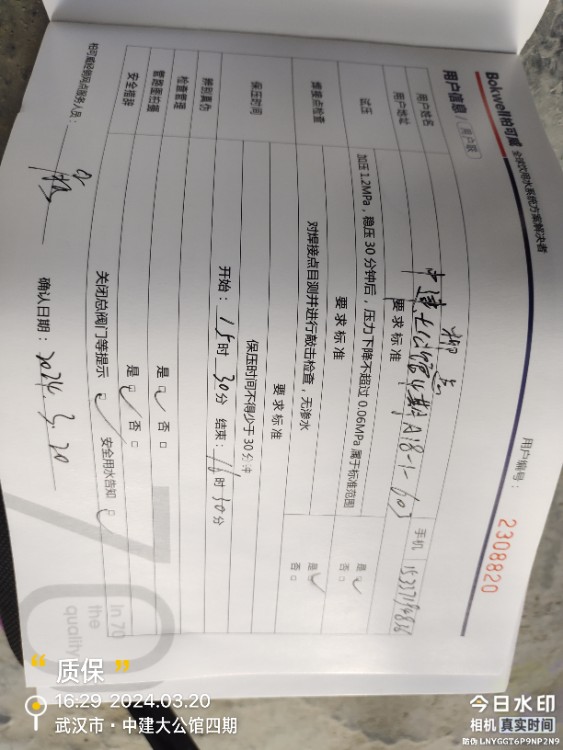 Bokwell柏可威 全球饮用水系统方案解决者
用户编号： 2308820
用户信息/用户联
用户姓名 柳
用户地址 中建大公馆4期A18-1-603 手机
试压 要求标准
加压1.2MPa，稳压30分钟后，压力下降不超过0.06MPa属于标准范围 是☑ 否□
焊接点检查 要求标准
对焊接点目测并进行敲击检查，无渗水 是☑ 否□
保压时间 要求标准
保压时间不得少于30分钟
开始：15时30分 结束：16时30分
辨别真伪 是☑ 否□
检查管理 是☑ 否□
管路图拍摄
安全措辞 关闭总阀门等提示☑ 安全用水告知☑
柏可威经销网点服务人员：
确认日期：2024.3.20
In 70
the
quality
“质保”
16:29 2024.03.20
武汉市·中建大公馆四期
今日水印
相机 真实时间
防伪 LNYGGT6P9NP2N9